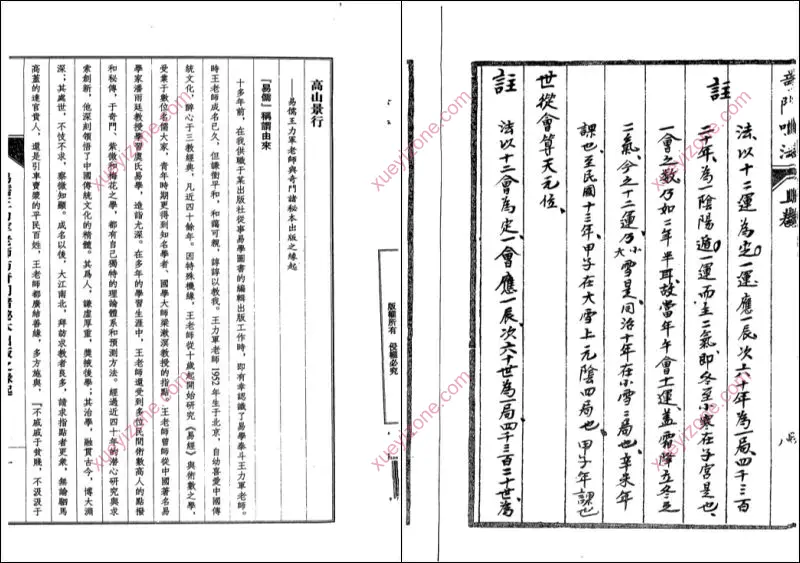 高山景行
——易儒王力軍老師與奇門諸秘本出版之緣起
『易儒』稱謂由來
十多年前，在我供職于某出版社從事易學圖書的編輯出版工作時，即有幸認識了易學泰斗王力軍老師。
時王老師成名已久，但謙衝平和，和藹可親，諄諄以教我。王力軍老師1952年生于北京，自幼喜愛中國傳
統文化，醉心于三教經典，凡近四十餘年。因特殊機緣，王老師從十歲起開始研究《易經》與術數之學，
受業于數位名儒大家，青年時期更得到知名學者、國學大師梁漱溟教授的指點。王老師曾師從中國著名易
學家潘雨廷教授學習虞氏易學，造詣尤深。在多年的學習生涯中，王老師還受到多位民間術數高人的點撥
和秘傳，于奇門、紫微和梅花之學，都有自己獨特的理論體系和預測方法。經過近四十年的潛心研究與求
索創新，他深刻領悟了中國傳統文化的精髓。其爲人，謙虛厚重，獎掖後學；其治學，融貫古今，博大淵
深；其處世，不忮不求，察微知顯。成名以後，大江南北，拜訪求教者良多，請求指點者更衆，無論駟馬
高蓋的達官貴人，還是引車賣漿的平民百姓，王老師都廣結善緣，多方施與，『不戚戚于貧賤，不汲汲于
版權所有 侵權必究
奇門吟法 上卷
法以十二運為定一運應一辰次六十年為一局四千三百
二十年為一陰陽遁一運而主二氣即冬至小寒在子宮是也
註 一會之數乃如二年半耳故當年午會十一運蓋霜降立冬之
二氣今之十二運乃小大雪是同治十年在小雪二局也辛未年
課也至民國十三年甲子在大雪上元陰四局也甲子年課也
世從會算天元位
註 法以十二會為定一會應一辰次六十世為一局四千三百二十世為
xueyizone.com
xueyizone.com
xueyizone.com
xueyizone.com
xueyizone.com
xueyizone.com